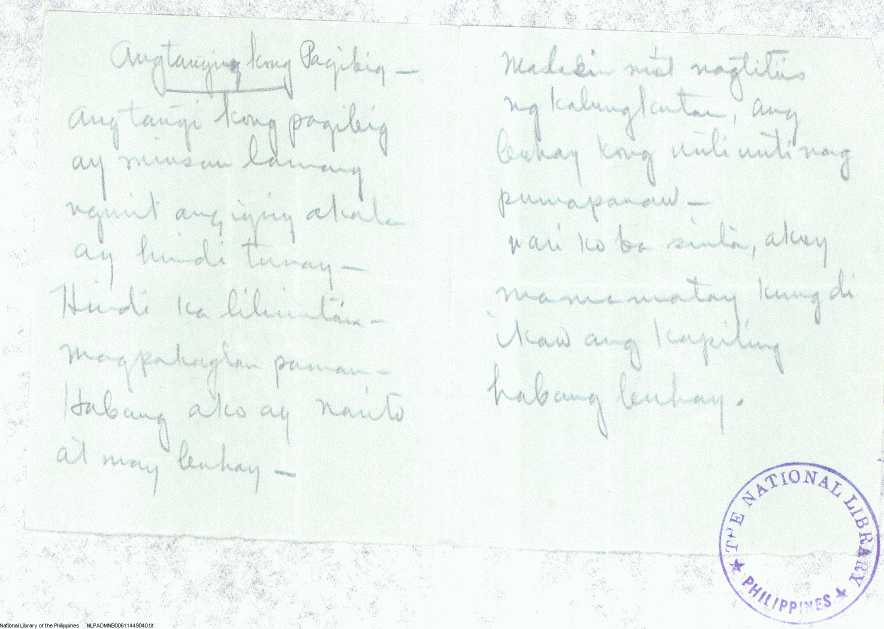 Ang tanging kong Pagibig —
Ang tangi kong pagibig
ay minsan lamang
nguint ang iyong akala
ay hindi tunay —
Hindi ka lilimutin —
magpakaylan paman —
Habang ako ay narito
at may buhay —
Malasin mo't nagtitiis
ng kalungkutan, ang
buhay kong unti unti nang
pumapanaw —
wari ko ba sinta, akoy
mamamatay kung di
ikaw ang kapiling
habang buhay.
THE NATIONAL LIBRARY
PHILIPPINES
National Library of the Philippines